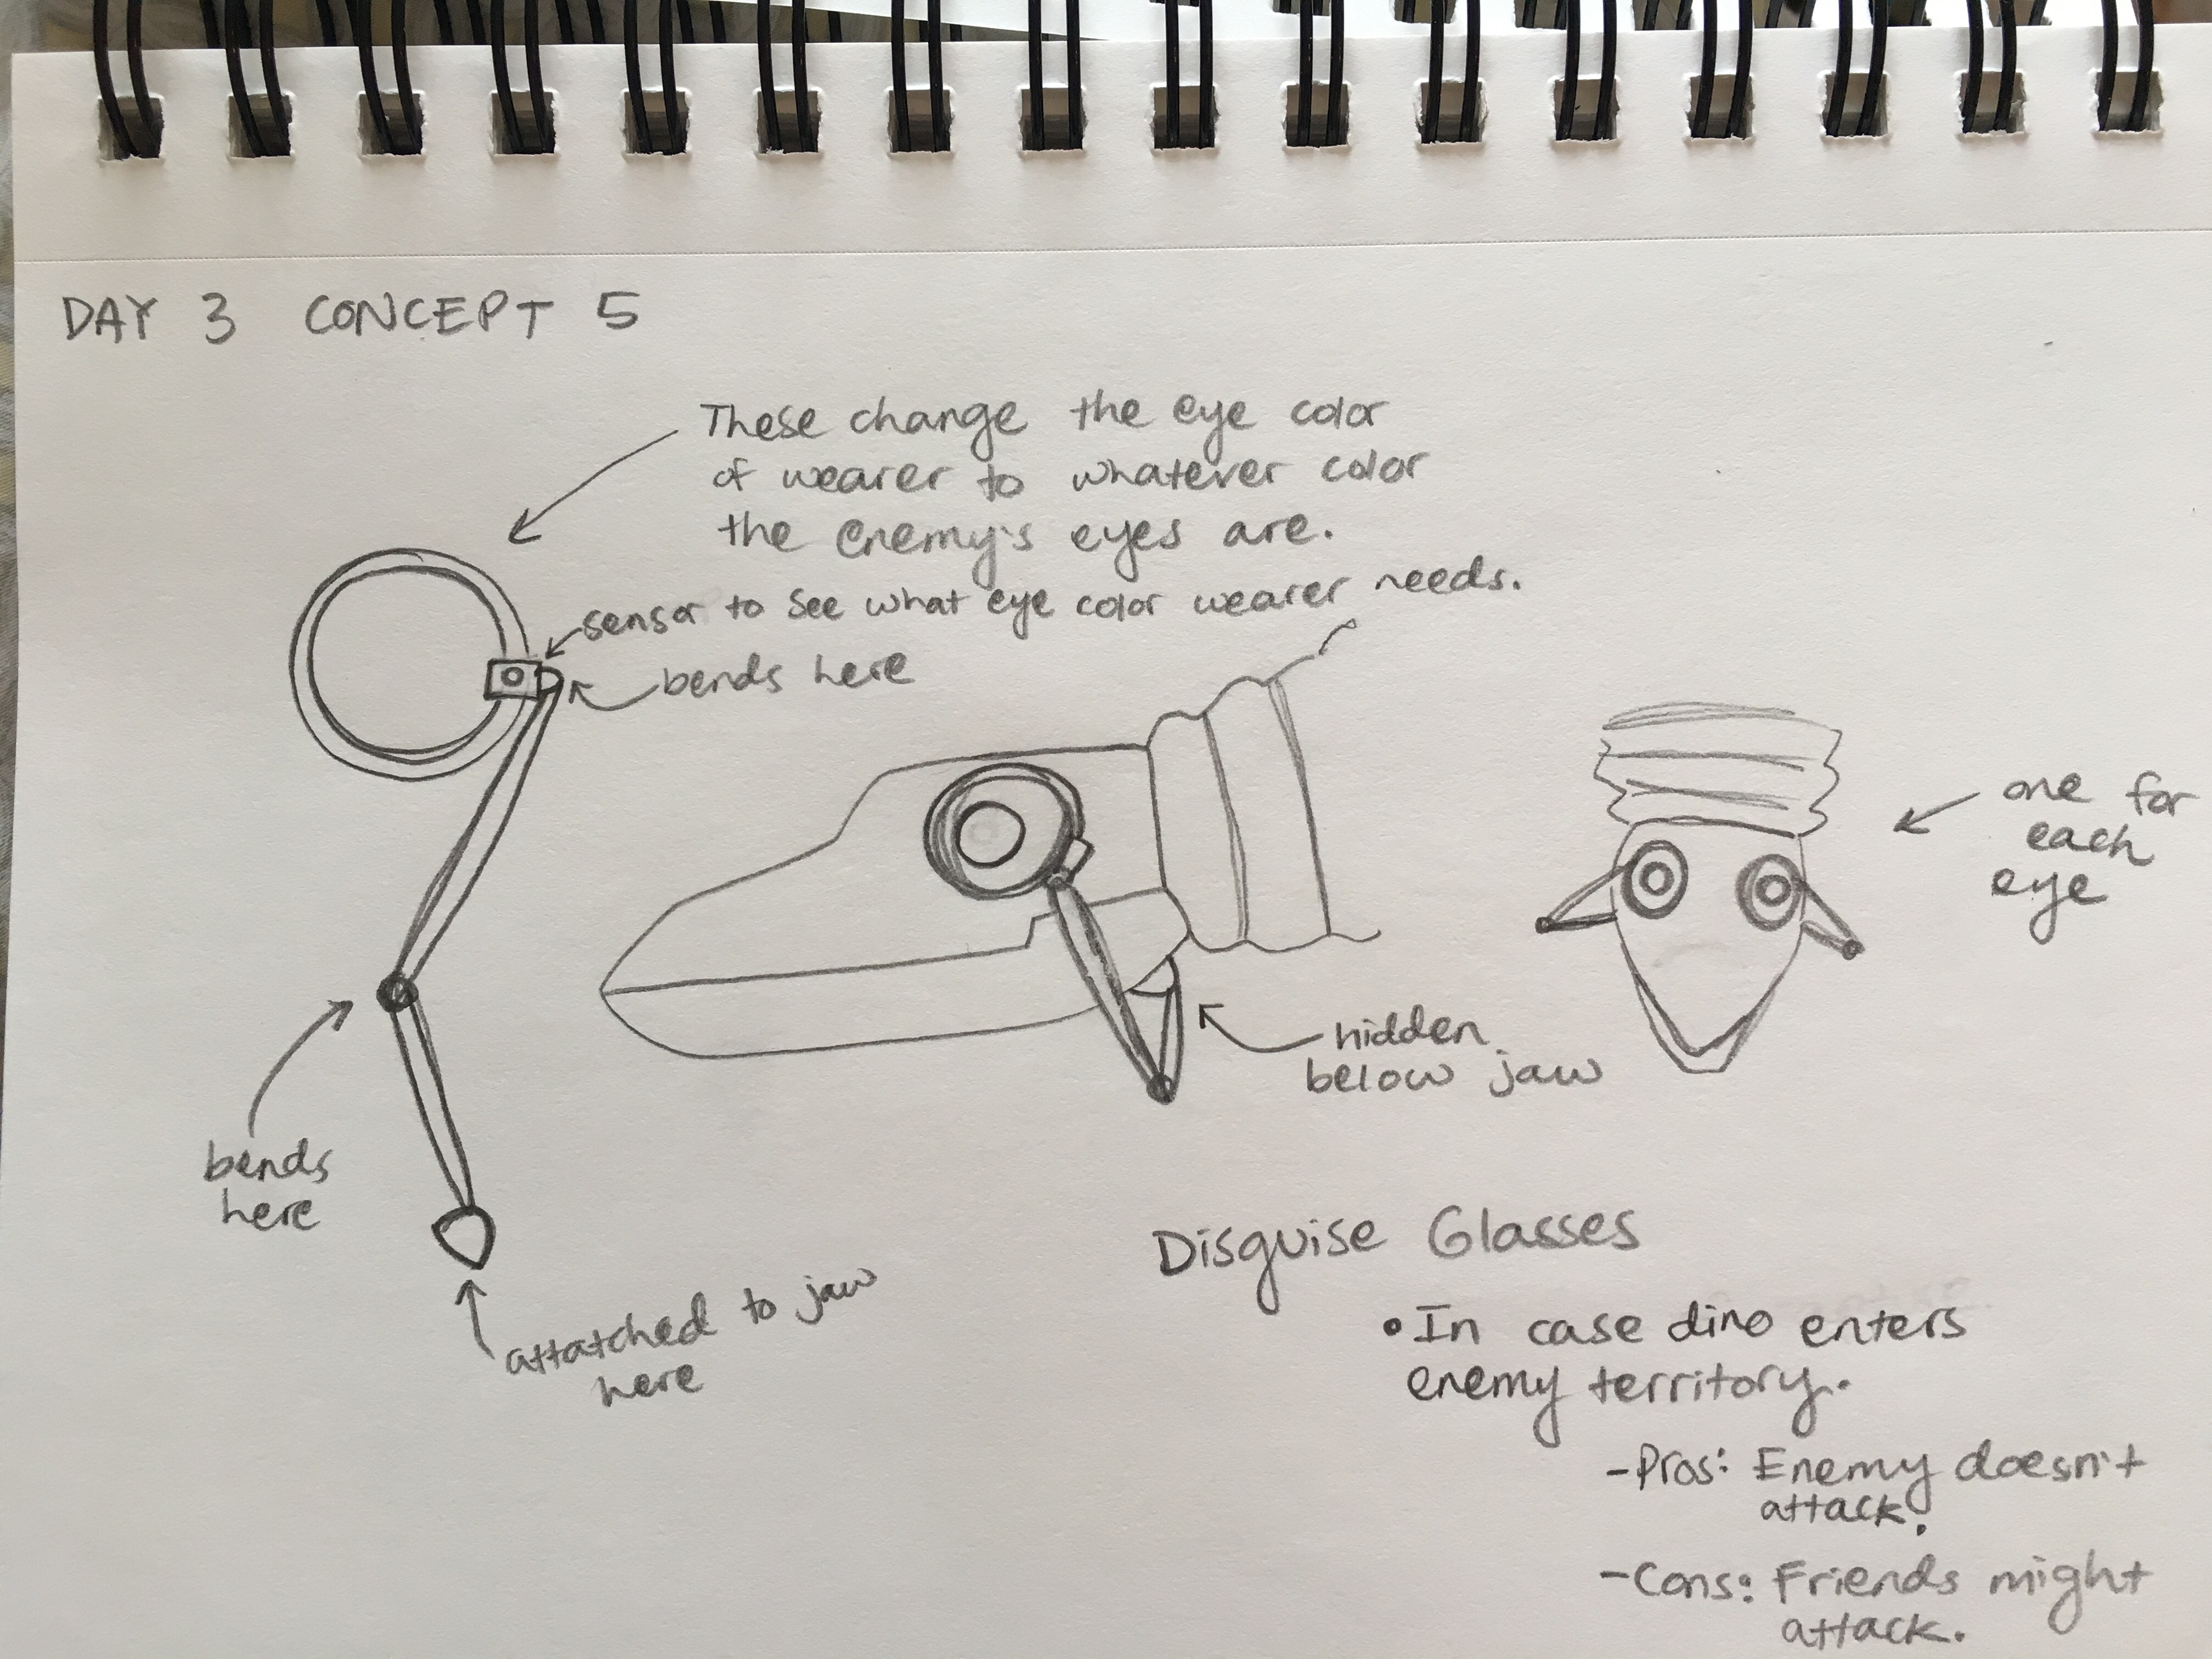 DAY 3 CONCEPT 5
These change the eye color
of wearer to whatever color
the enemy's eyes are.
sensor to see what eye color wearer needs.
bends here
one for
each
eye
hidden
below jaw
bends
here
attatched to jaw
here
Disguise Glasses
•In case dino enters
enemy territory.
-Pros: Enemy doesn't
attack.
-Cons: Friends might
attack.